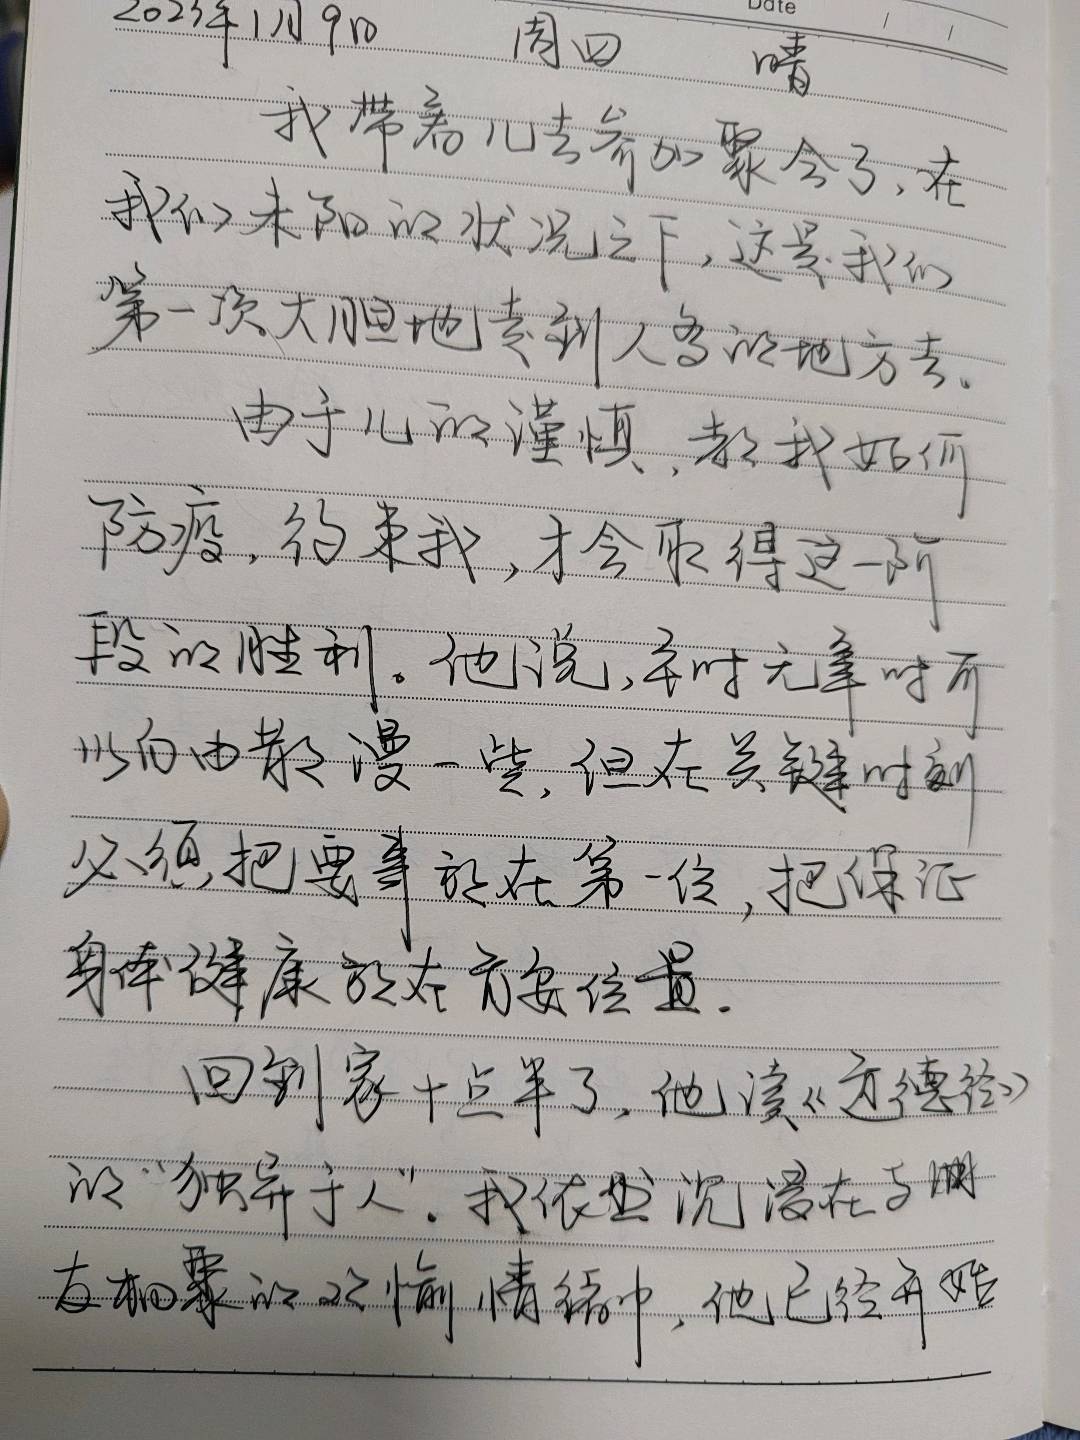 Date / /
2023年1月9日 周四 晴
我带着儿去参加聚会了，在
我们未阳的状况之下，这是我们
第一次大胆地去到人多的地方去。
由于儿的谨慎，教我如何
防疫，约束我，才会取得这一阶
段的胜利。他说，平时无事时可
以自由散漫一些，但在关键时刻
必须把要事放在第一位，把保证
身体健康放在首要位置。
回到家十点半了，他读《道德经》
的“独异于人”。我依然沉浸在与朋
友相聚的欢愉情绪中，他已经开始